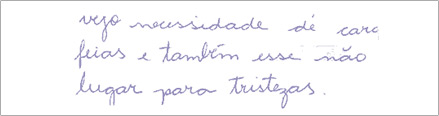 vejo necessidade dé cara
feias e também esse não
lugar para tristezas.